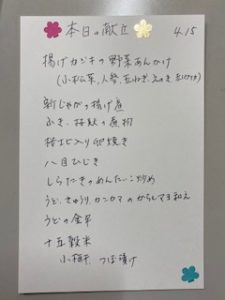 本日の献立 4.15
揚げカジキの野菜あんかけ
(小松菜、人参、玉ねぎ、えのき
新じゃがの揚げ煮
ふき、の煮物
桜エビ入り卵焼き
八目ひじき
しらたきのめんたいこ炒め
うど、きゅうり、カニカマのからしマヨ和え
うどの金平
十五穀米
小梅干、つぼ漬け